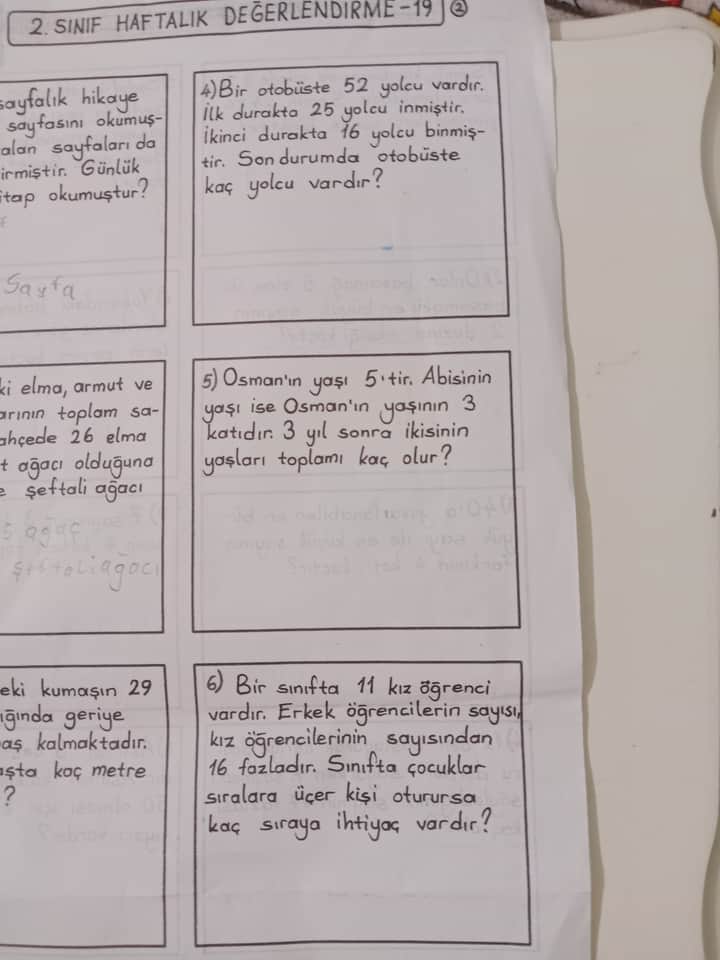 2. SINIF HAFTALIK DEĞERLENDİRME-19 2
sayfalık hikaye
sayfasını okumuş-
alan sayfaları da
irmiştir. Günlük
itap okumuştur?
Sayfa
4) Bir otobüste 52 yolcu vardır.
İlk durakta 25 yolcu inmiştir.
İkinci durakta 16 yolcu binmiş-
tir. Son durumda otobüste
kaç yolcu vardır?
ki elma, armut ve
arının toplam sa-
ahçede 26 elma
t ağacı olduğuna
e şeftali ağacı
5 ağaç
şeftali ağacı
5) Osman'ın yaşı 5'tir. Abisinin
yaşı ise Osman'ın yaşının 3
katıdır. 3 yıl sonra ikisinin
yaşları toplamı kaç olur?
eki kumaşın 29
ığında geriye
aş kalmaktadır.
aşta kaç metre
?
6) Bir sınıfta 11 kız öğrenci
vardır. Erkek öğrencilerin sayısı,
kız öğrencilerinin sayısından
16 fazladır. Sınıfta çocuklar
sıralara üçer kişi oturursa
kaç sıraya ihtiyaç vardır?